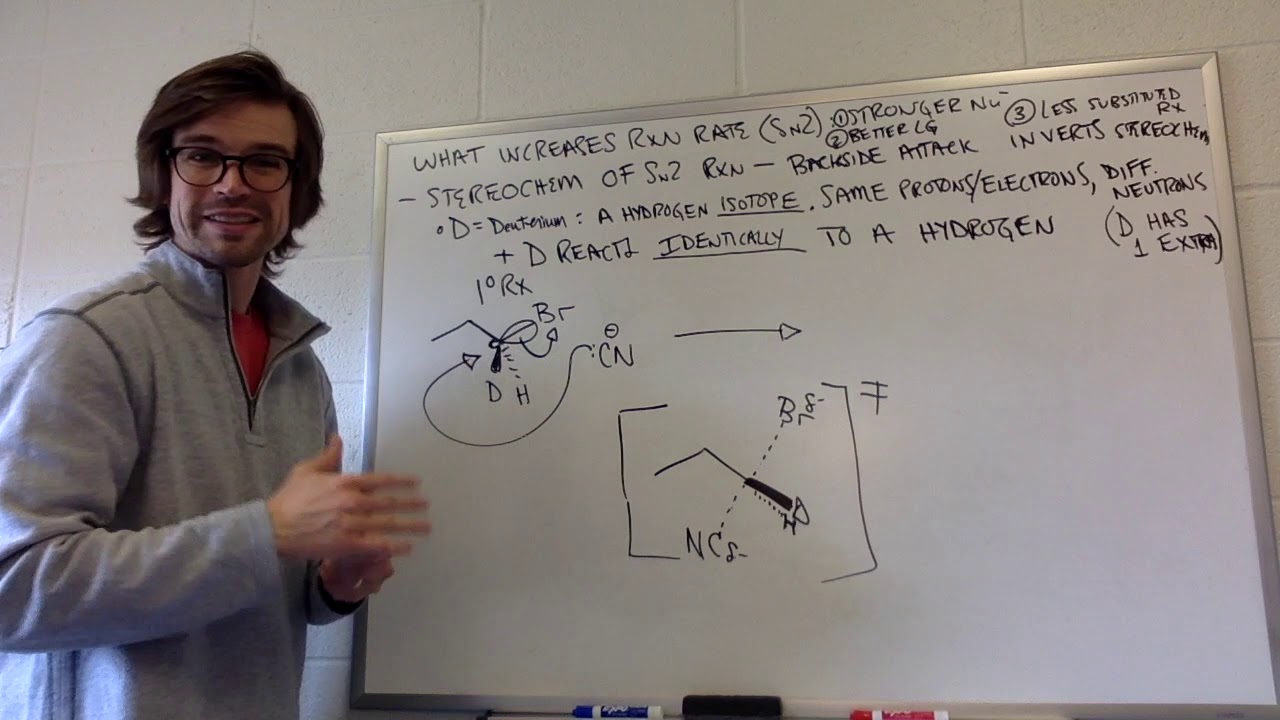 WHAT INCREASES RXN RATE (SN2): ① STRONGER Nu⁻ ③ LESS SUBSTITUTED RX
② BETTER LG
- STEREOCHEM OF SN2 RXN - BACKSIDE ATTACK INVERTS STEREOCHEM
• D = Deuterium: A HYDROGEN ISOTOPE. SAME PROTONS/ELECTRONS, DIFF. NEUTRONS
+ D REACTS IDENTICALLY TO A HYDROGEN (D HAS 1 EXTRA)
1° RX
Br
⊖
:CN
D H
Br δ-
‡
H D
NC δ-